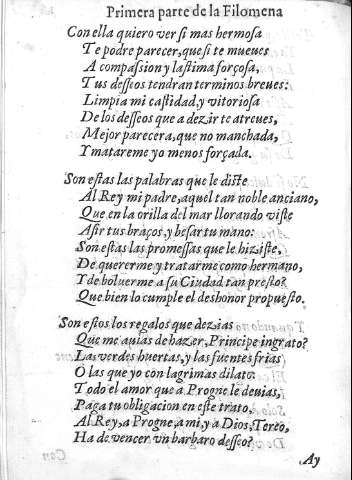 Primera parte de la Filomena
Con ella quiero ver si mas hermosa
Te podre parecer, que si te mueues
A compassion y lastima forçosa,
Tus desseos tendran terminos breues:
Limpia mi castidad, y vitoriosa
De los desseos que a dezir te atreues,
Mejor parecera, que no manchada,
Y matareme yo menos forçada.
Son estas las palabras que le diste
Al Rey mi padre, aquel tan noble anciano,
Que en la orilla del mar llorando viste
Asir tus braços, y besar tu mano:
Son estas las promessas que le hiziste,
De quererme y tratarme como hermano,
Y de boluerme a su Ciudad tan presto?
Que bien lo cumple el deshonor propuesto.
Son estos los regalos que dezias
Que me auias de hazer, Principe ingrato?
Las verdes huertas, y las fuentes frias
O las que yo con lagrimas dilato:
Todo el amor que a Progne le deuias,
Paga tu obligacion en este trato,
Al Rey, a Progne, a mi, y a Dios, Tereo,
Ha de vencer vn barbaro desseo?
Ay